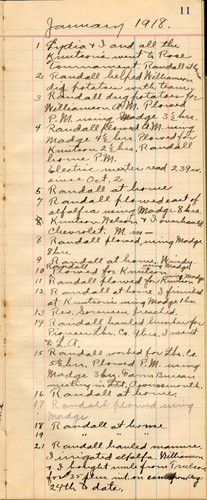 11
January 1918.
1 Lydia & I and all the
Knutsons went to Rose
Tournament. Randall at home
2 Randall helped Williamson
dig potatoes with team.
3 Randall drew potatoes for
Williamson A.M. Plowed
P.M. using Madge 3½ hrs.
4 Randall plowed A.M. using
Madge 4½ hrs. Plowed for
Knutson 2½ hrs. Randall
home P.M.
Electric meter read 239 w.
since Oct. 2.
5 Randall at home
7 Randall plowed east of
alfalfa using Madge 8 hrs.
Nelson & I overhauled
Chevrolet.
8 Randall plowed using Madge
8 hrs.
9 Randall at home. Windy
10 Randall plowed for Knutson using Madge
11 Randall plowed for Knutson using Madge
12 Randall at home. I finished
at Knutsons using Madge 1 hr.
13 Rev. Sorensen preached.
14 Randall hauled lumber for
Pioneer Lbr. Co. 9 hrs. I went
to L.A.
15 Randall worked for Lbr. Co.
5½ hrs. Plowed P.M. using
Madge 3 hrs. Farm Bureau
meeting in
16 Randall at home.
17 Randall plowed using
Madge
18 Randall at home
19 " " "
21 Randall hauled manure.
I irrigated alfalfa. Williamson
& I bought mule from
for 35 plus int. on
24th to date.